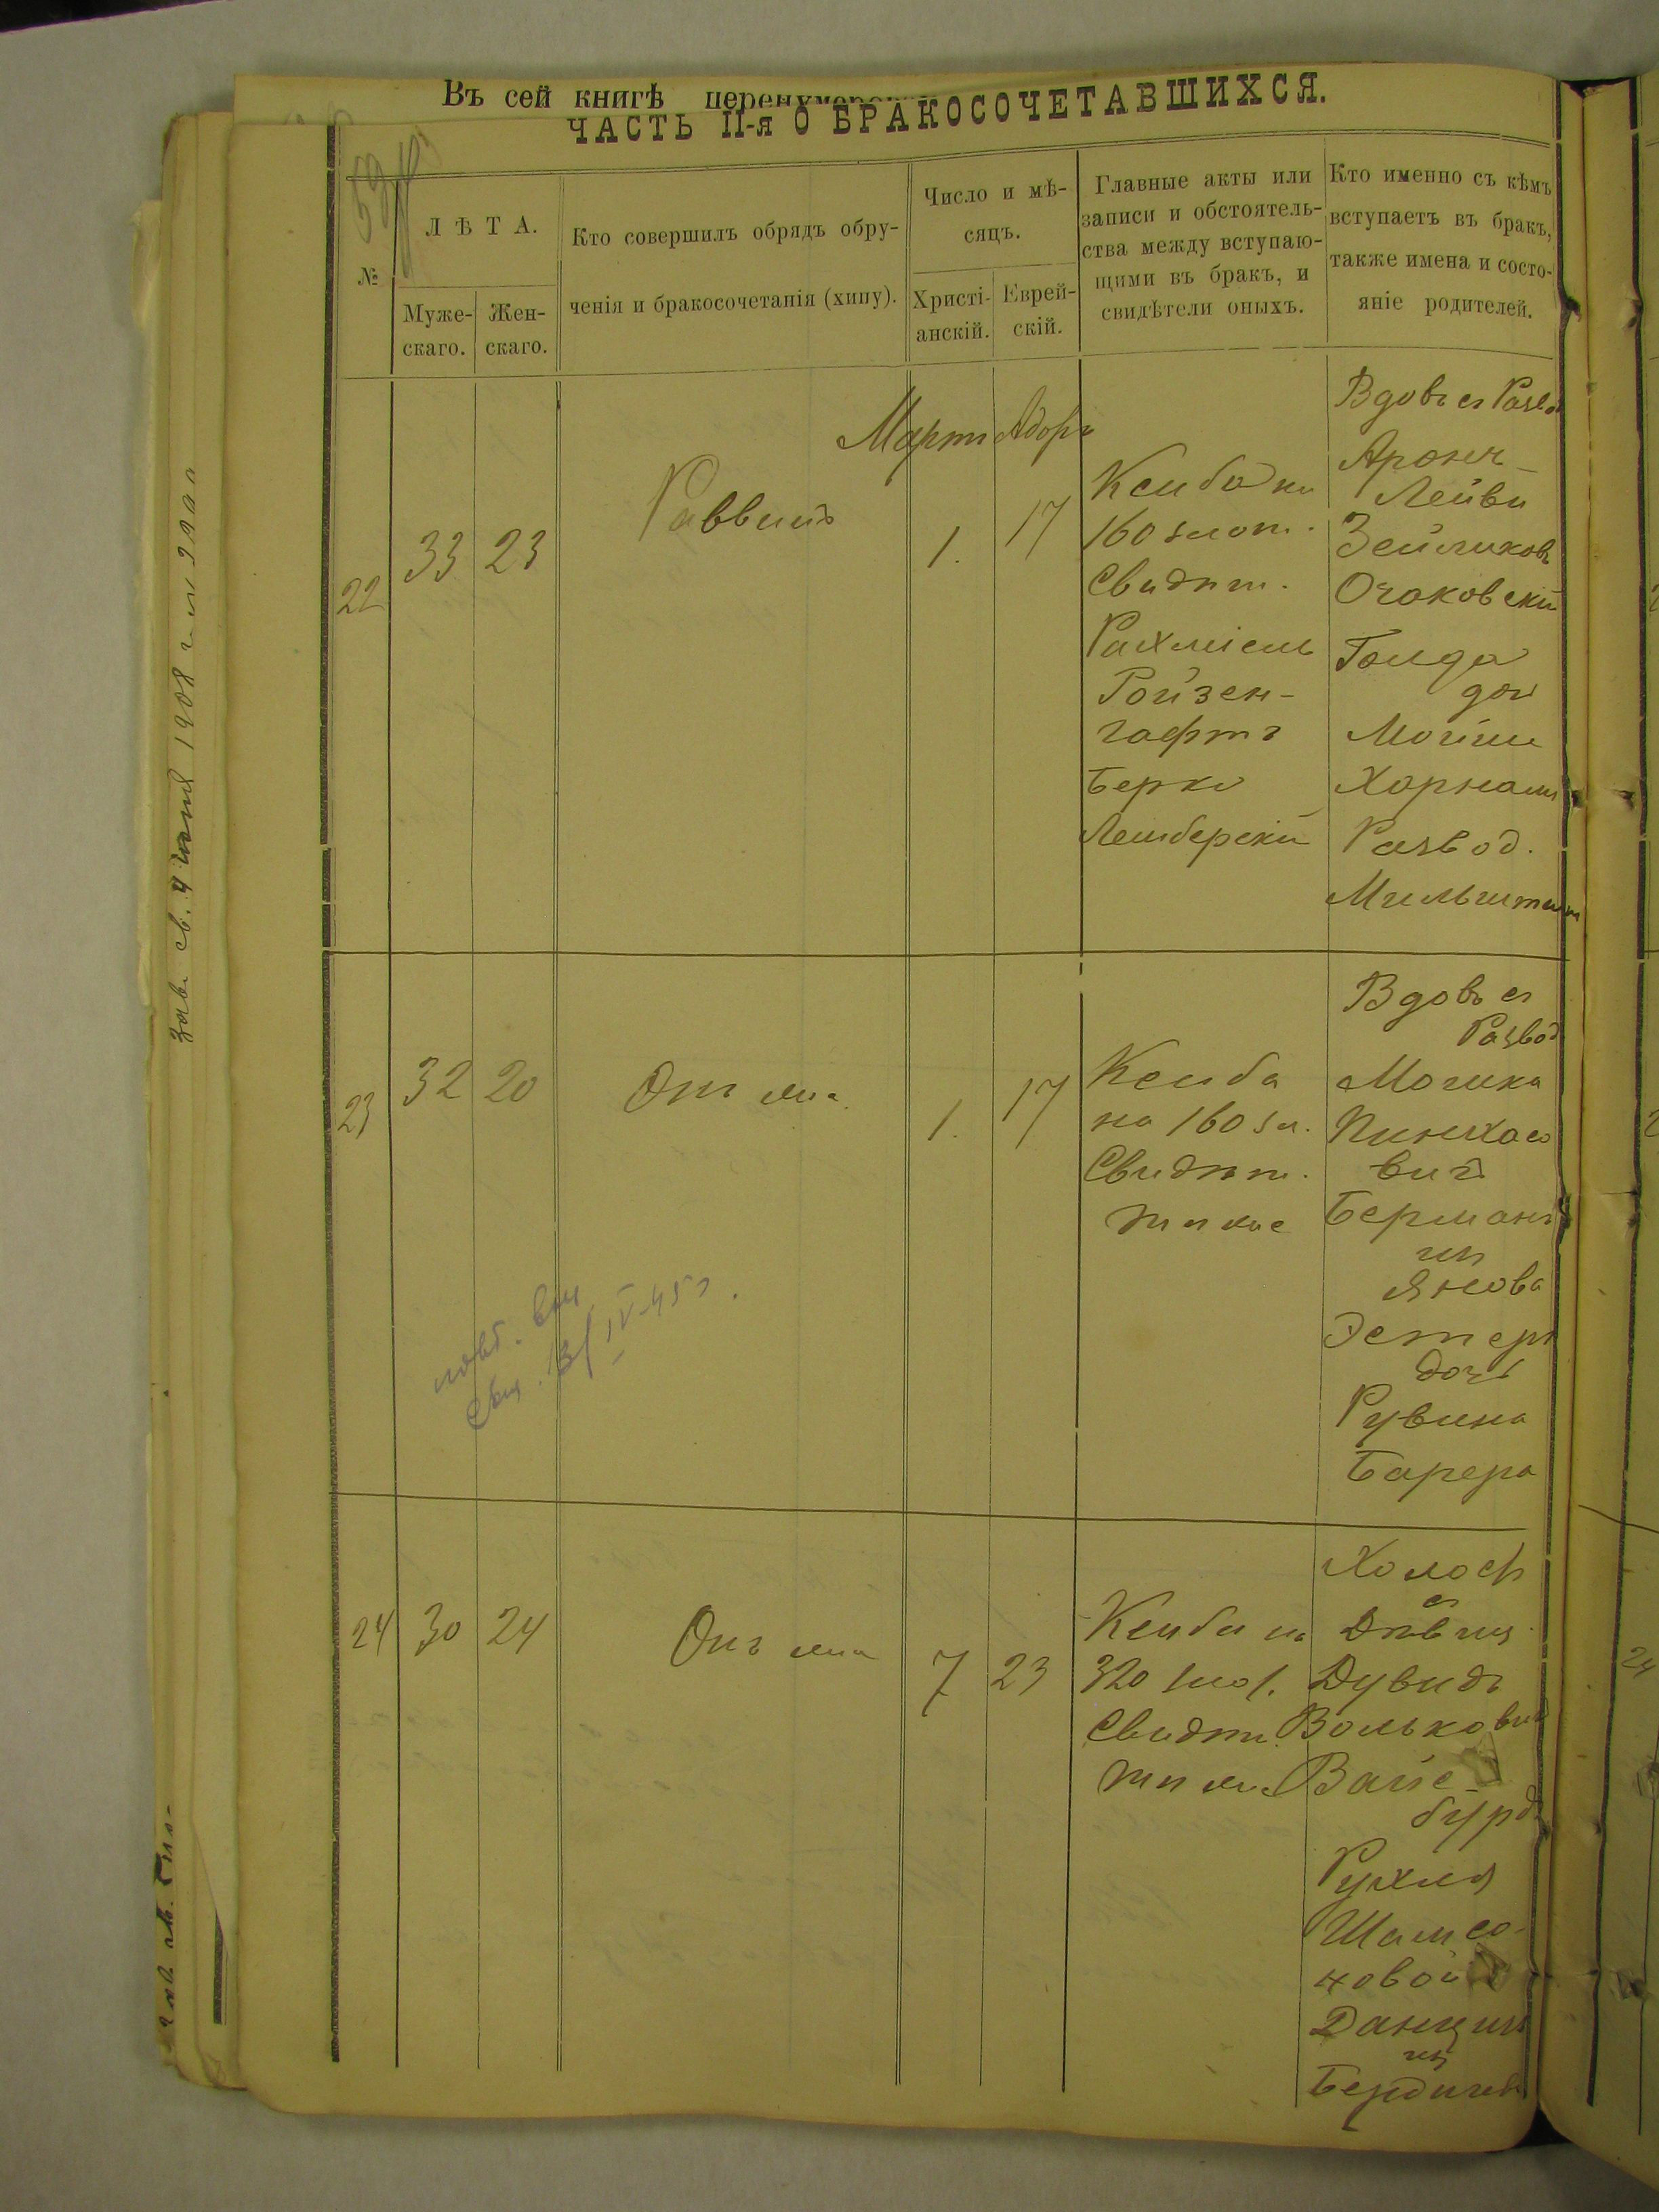 Въ сей книгѣ
ЧАСТЬ II-я О БРАКОСОЧЕТАВШИХСЯ.
№
ЛѢТА.
Муже-
скаго.
Жен-
скаго.
Кто совершилъ обрядъ обру-
ченія и бракосочетанія (хипу).
Число и мѣ-
сяцъ.
Христі-
анскій.
Еврей-
скій.
Главные акты или
записи и обстоятель-
ства между вступаю-
щими въ бракъ, и
свидѣтели оныхъ.
Кто именно съ кѣмъ
вступаетъ въ бракъ,
также имена и состо-
яніе родителей.
Мартъ Адоръ
22
33
23
Раввинъ
1.
17
Ксиба на
160 злот.
Свидѣт.
Рахміель
Ройзен-
гафтъ
Берко
Лемберскій
Вдовъ съ Развод
Аронъ-
Лейви
Зейликовъ
Очаковскій
Голда
доч
Мойше
Развод.
23
32
20
Онъ же
1.
17
Ксиба
на 160 зл.
Свидѣт.
тѣ же
Вдовъ съ
Развод
Мошка
Пинхасо
вичъ
Берманъ
изъ
Янова
Эстеръ
дочь
Рувина
Барера
повт.
свид. 13/IV-45 г.
24
30
24
Онъ же
7
23
Ксиба на
320 злот.
Свидѣт.
тѣ же
Холост
съ
Дѣвиц.
Дувидъ
Вольковичъ
Вайс-
бурд
Рухля
Шамсо-
новой
Данцигъ
изъ
Бердичев
24